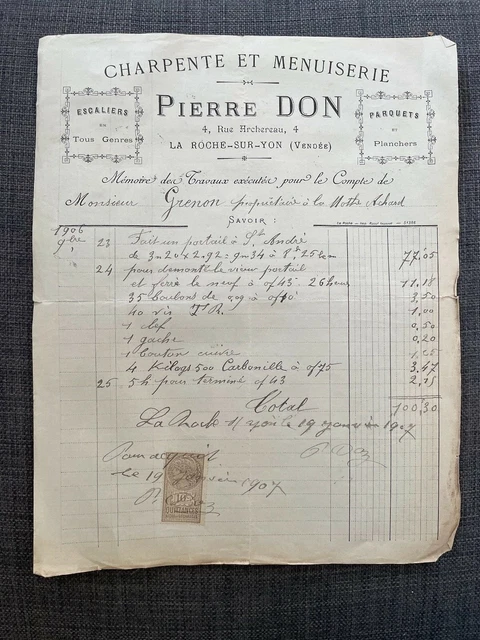 CHARPENTE ET MENUISERIE
ESCALIERS
EN
Tous Genres
PIERRE DON
4, Rue Archereau, 4
LA ROCHE-SUR-YON (VENDÉE)
PARQUETS
ET
Planchers
Mémoire des Travaux exécutés pour le Compte de
Monsieur Grenon propriétaire à la Mothe Achard
SAVOIR :
1906
9bre 23 Fait un portail à St André
de 3m20 x 2.92 = 9m34 à 8f,25 le m 77,05
24 pour démonté le vieux portail
et ferré le neuf à 0f43 26 heures 11,18
35 boulons de 0,09 à 0f10 3,50
40 vis T R. 1,00
1 clef 0,50
1 gache 0,20
1 bouton cuivre
4 Kilogs 500 Carbonille à 0f75 3,47
25 5h pour terminé 0f43 2,15
Total 100,30
La Roche s/ Yon le 19 janvier 1907
P. Don
Pour acquit
le 19 janvier 1907
P. Don
10c
QUITTANCES